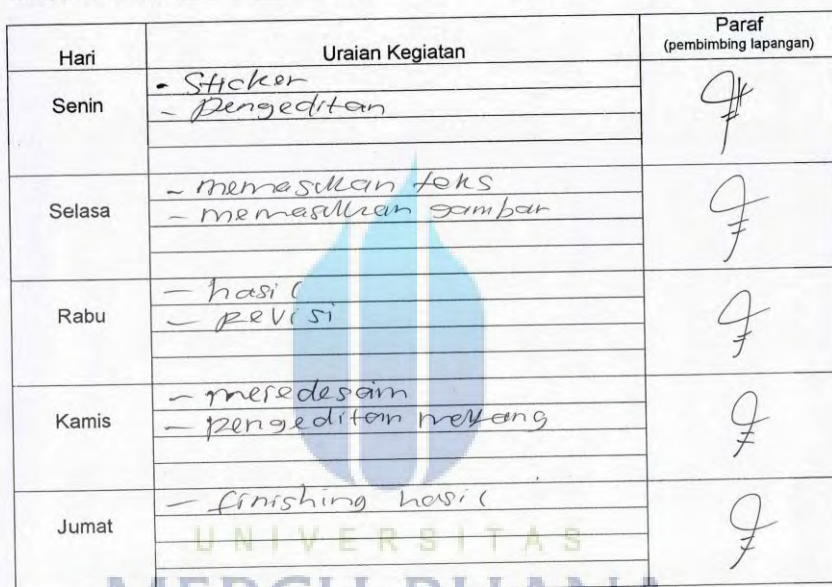 Hari Uraian Kegiatan Paraf
(pembimbing lapangan)
Senin
- Sticker
- pengeditan
Selasa
- memasukan teks
- memasukkan gambar
Rabu
- hasil
- Revisi
Kamis
- meredesain
- pengeditan
Jumat
- finishing hasil
UNIVERSITAS
MERCU BUANA